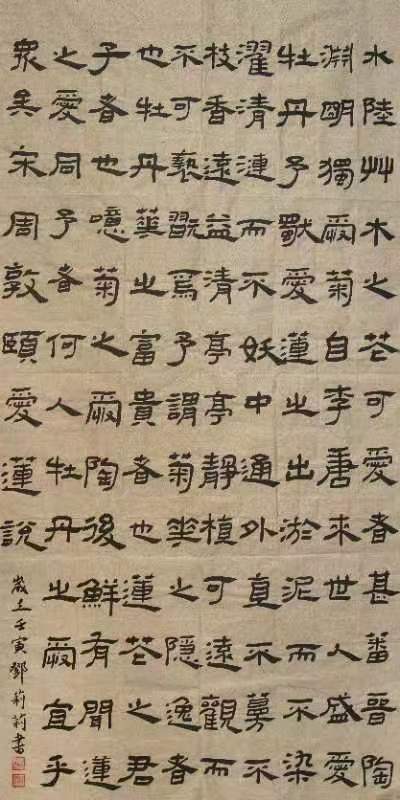 水陸艸木之芲可愛者甚蕃晉陶
淵明獨愛菊自李唐来世人盛愛
牡丹予獨愛蓮之出淤泥而不染
濯清漣而不妖中通外直不蔓不
枝香遠益清亭亭静植可遠觀而
不可褻翫焉予謂菊華之隱逸者
也牡丹華之富貴者也蓮芲之君
子者也噫菊之愛陶後鮮有聞蓮
之愛同予者何人牡丹之愛宜乎
眾矣宋周敦頤愛蓮說
歲在壬寅鄧莉莉書